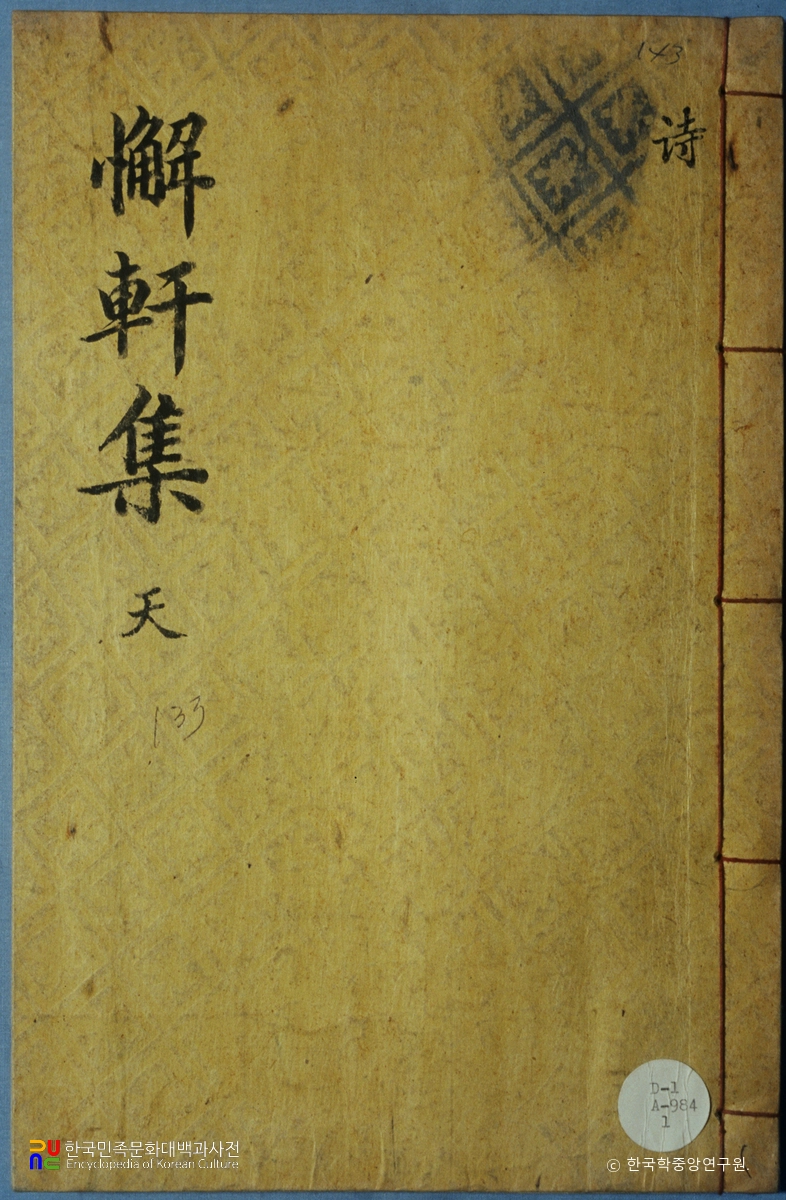 143
詩
懈軒集 天
133
D-1
A-984
1
한국민족문화대백과사전
Encyclopedia of Korean Culture
© 한국학중앙연구원.